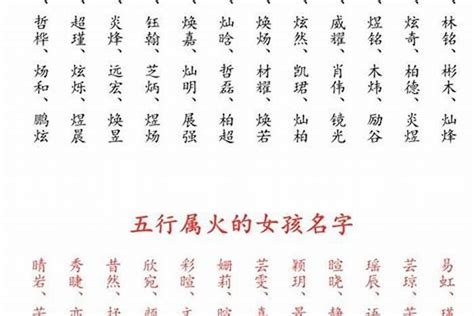 林铭、彬木、灿烽
炫奇、柏德、炎煜
煜铭、木炜、励谷
威耀、肖伟、镜光
炫然、凯珺、灿柏
焕炀、材耀、焕若
灿晗、哲磊、柏超
焕嘉、灿明、展强
钰翰、芝炳、煜炀
炎烽、远宏、焕昱
超瑾、炫烁、煜晨
哲桦、炀和、鹏炫
五行属火的女孩名字
易虹、
芸琼、
瑶辰、
暄晓、
颖玥、景
芸雯、
姗莉、
彩暄、文
欣宛、
昔然、
秀睫、亦
晴岩、